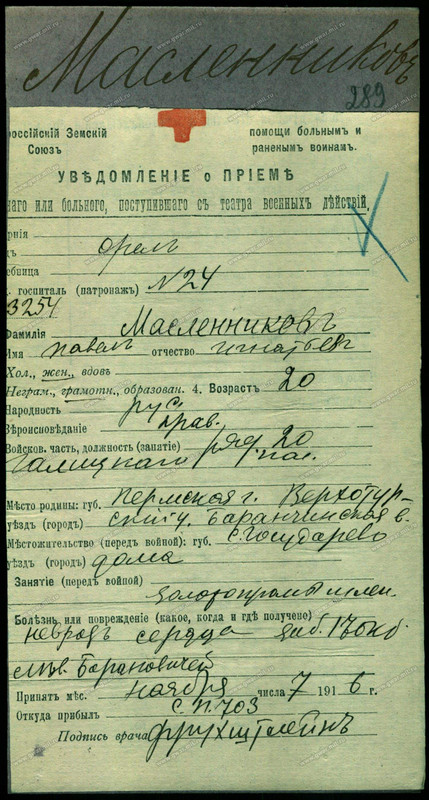 Масленниковъ
289
россійскій Земскій Союзъ
помощи больнымъ и раненымъ воинамъ.
УВѢДОМЛЕНІЕ о ПРІЕМѢ
наго или больного, поступившаго съ театра военныхъ дѣйствій.
рнія
ъ Орелъ
ебница
. госпиталь (патронажъ) N24
3254
Фамилія Масленниковъ
Имя Павелъ отчество Игнатьев
Хол., жен., вдов.
Неграм., грамотн., образован. 4. Возрастъ 20
Народность рус.
Вѣроисповѣданіе прав.
Войсков. часть, должность (занятіе) ряд. 20
Галицкаго пол.
Мѣсто родины: губ. Пермская г. Верхотур-
уѣздъ (городъ) скій у. Баранчинская в.
Мѣстожительство (передъ войной): губ. с. Государево
уѣздъ (городъ) дома
Занятіе (передъ войной)
золотопромышлен.
Болѣзнь или поврежденіе (какое, когда и гдѣ получено)
неврозъ сердца заб.
м. Барановичей
Принятъ мѣс. ноября числа 7 1916 г.
Откуда прибылъ С.П. 703
Подпись врача Фрухштейнъ